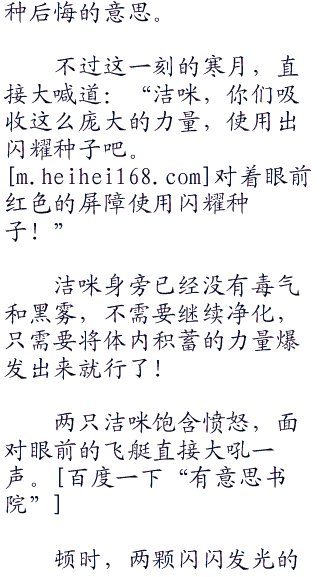 种后悔的意思。
不过这一刻的寒月，直
接大喊道：“洁咪，你们吸
收这么庞大的力量，使用出
闪耀种子吧。
[m.heihei168.com]对着眼前
红色的屏障使用闪耀种
子！”
洁咪身旁已经没有毒气
和黑雾，不需要继续净化，
只需要将体内积蓄的力量爆
发出来就行了！
两只洁咪饱含愤怒，面
对眼前的飞艇直接大吼一
声。[百度一下“有意思书
院”]
顿时，两颗闪闪发光的